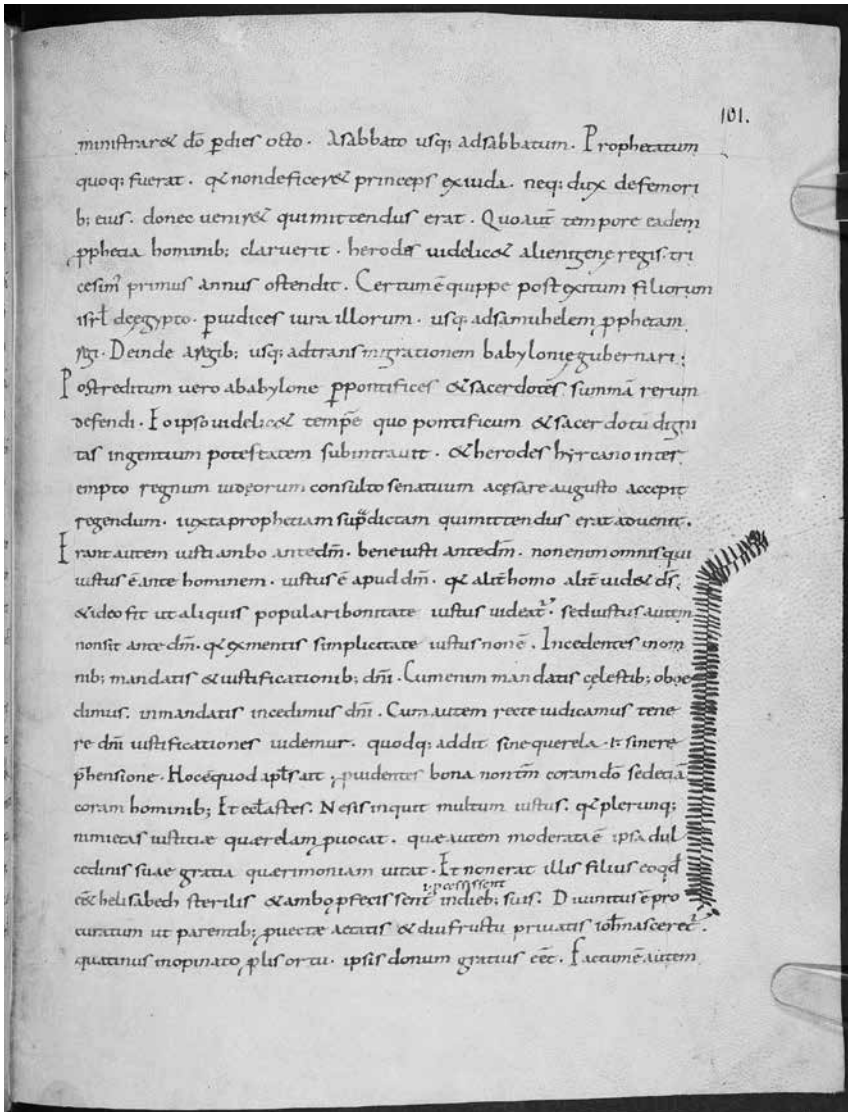 101.
ministrar& dō ꝑdies octo. Asabbato usq; adsabbatum. Prophetatum
quoq; fuerat. qđ nondeficer& princeps exiuda. neq; dux defemori
b; eius. donec uenir& quimittendus erat. Quoaut̄ tempore eadem
ꝓphetia hominib; claruerit. herodis uidelic& alienigenę regis. tri
cesim' primus annus ostendit. Certumē quippe postexitum filiorum
isrł deęgypto. ꝑiudices iura illorum. usq; adsamuhelem ꝓphetam
regi. Deinde aregib; usq; adtransmigrationem babylonię gubernari;
Postreditum vero ababylone ꝑpontifices &sacerdotes summā rerum
defendi. Eoipso uidelic& temp̄e quo pontificum &sacerdotū digni
tas ingentium potestatem subintrauit. &herodes hyrcano inter
empto regnum iudęorum consulto senatuum acęsare augusto accepit
regendum. iuxtaprophetiam sup̄dictam quimittendus erat aduenit.
Erant autem iusti ambo antedm̄. bene iusti antedm̄. nonenim omnisqui
iustus ē ante hominem. iustus ē apud dm̄. qđ alit̄ homo alit̄ uid& ds̄;
&ideo fit ut aliquis popularibonitate iustus uideat̄. sediustus autem
nonsit ante dm̄. qđ exmentis simplicitate iustus nonē. Incedentes inom
nib; mandatis &iustificationib; dn̄i. Cumenim mandatis cęlestib; oboe
dimus. inmandatis incedimus dn̄i. Cum autem recte iudicamus tene
re dn̄i iustificationes uidemur. quodq; addit sinequerela. ł sinere
p̄hensione. Hocēquod apłs ait ꝓuidentes bona nontm̄ coram dō sedetiā
coram hominib; Et eccłastes. Nesis inquit multum iustus. qđ plerunq;
nimietas iustitiæ quærelam ꝓuocat. quæ autem moderata ē ipsa dul
cedinis suae gratia quærimoniam uitat. Et non erat illis filius eoqđ
ēēt helisabeth sterilis &ambo ꝓfecissent indieb; suis. Diuinitus ē pro
ł ꝓcessissent
curatum ut parentib; ꝓuectæ aetatis &diu fructu priuatis ioħ nasceret̄.
quatinus inopinato ꝓlis ortu. ipsis donum gratius ēēt. Factumē autem